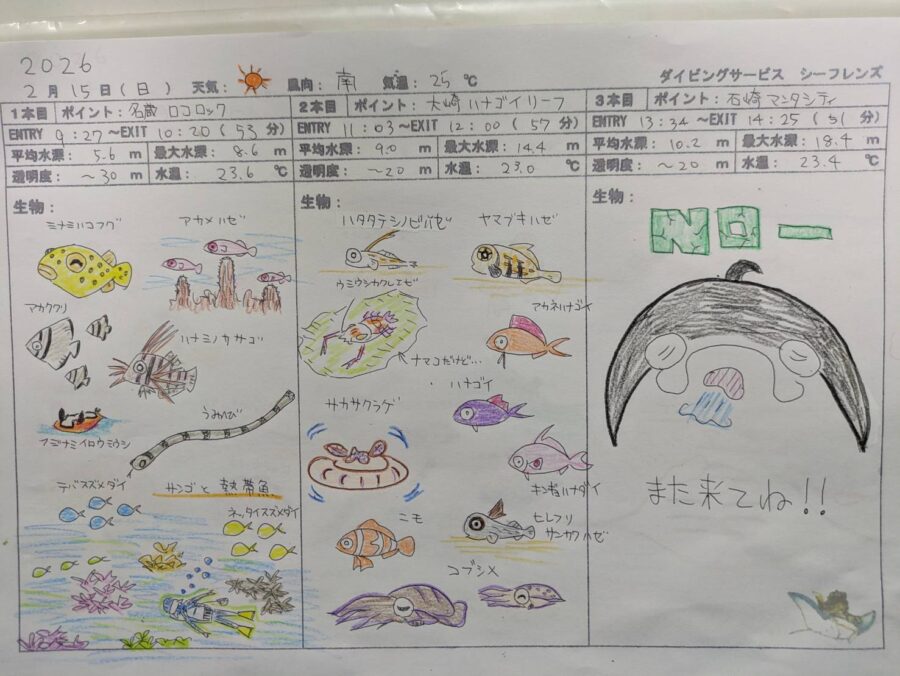 2026
2月15日(日) 天気: 風向: 南 気温: 25℃ ダイビングサービス シーフレンズ
1本目 ポイント: 名蔵 ロコロック
ENTRY 9:27~EXIT 10:20(53分)
平均水深: 5.6 m 最大水深: 8.6 m
透明度: ~30 m 水温: 23.6 ℃
生物:
ミナミハコフグ
アカメハゼ
マカククリ
ハナミノカサゴ
うみへび
アデナミイロウミウシ
デバスズメダイ
サンゴと熱帯魚
ネッタイスズメダイ
2本目 ポイント: 大崎 ハナゴイリーフ
ENTRY 11:03~EXIT 12:00(57分)
平均水深: 9.0 m 最大水深: 14.4 m
透明度: ~20 m 水温: 23.0 ℃
生物:
ハタタテシノビハゼ
ヤマブキハゼ
ウミウシカクレエビ
ナマコだけど...
アカネハナゴイ
ハナゴイ
サカサクラゲ
キンギョハナダイ
ニモ
ヒレフリ
サンカクハゼ
コブシメ
3本目 ポイント: 石崎 マンタシティ
ENTRY 13:34~EXIT 14:25(51分)
平均水深: 10.2 m 最大水深: 18.4 m
透明度: ~20 m 水温: 23.4 ℃
生物:
NO-
また来てね!!